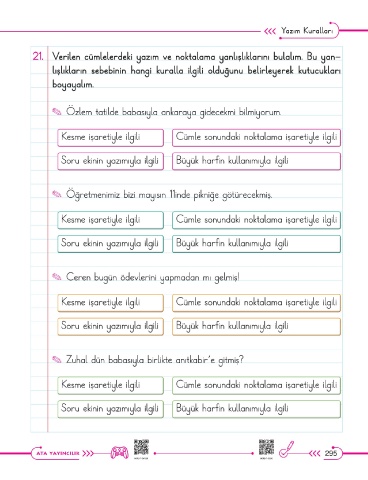 Yazım Kuralları
21. Verilen cümlelerdeki yazım ve noktalama yanlışlıklarını bulalım. Bu yan-
lışlıkların sebebinin hangi kuralla ilgili olduğunu belirleyerek kutucukları
boyayalım.
Özlem tatilde babasıyla ankaraya gidecekmi bilmiyorum.
Kesme işaretiyle ilgili Cümle sonundaki noktalama işaretiyle ilgili
Soru ekinin yazımıyla ilgili Büyük harfin kullanımıyla ilgili
Öğretmenimiz bizi mayısın 11inde pikniğe götürecekmiş.
Kesme işaretiyle ilgili Cümle sonundaki noktalama işaretiyle ilgili
Soru ekinin yazımıyla ilgili Büyük harfin kullanımıyla ilgili
Ceren bugün ödevlerini yapmadan mı gelmiş!
Kesme işaretiyle ilgili Cümle sonundaki noktalama işaretiyle ilgili
Soru ekinin yazımıyla ilgili Büyük harfin kullanımıyla ilgili
Zuhal dün babasıyla birlikte anıtkabir'e gitmiş?
Kesme işaretiyle ilgili Cümle sonundaki noktalama işaretiyle ilgili
Soru ekinin yazımıyla ilgili Büyük harfin kullanımıyla ilgili
ATA YAYINCILIK 295